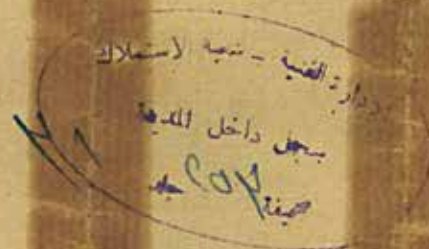 الفنية - شعبة الاستملاك
سجل داخل المدينة
صحيفة ٢٥٣ جلد